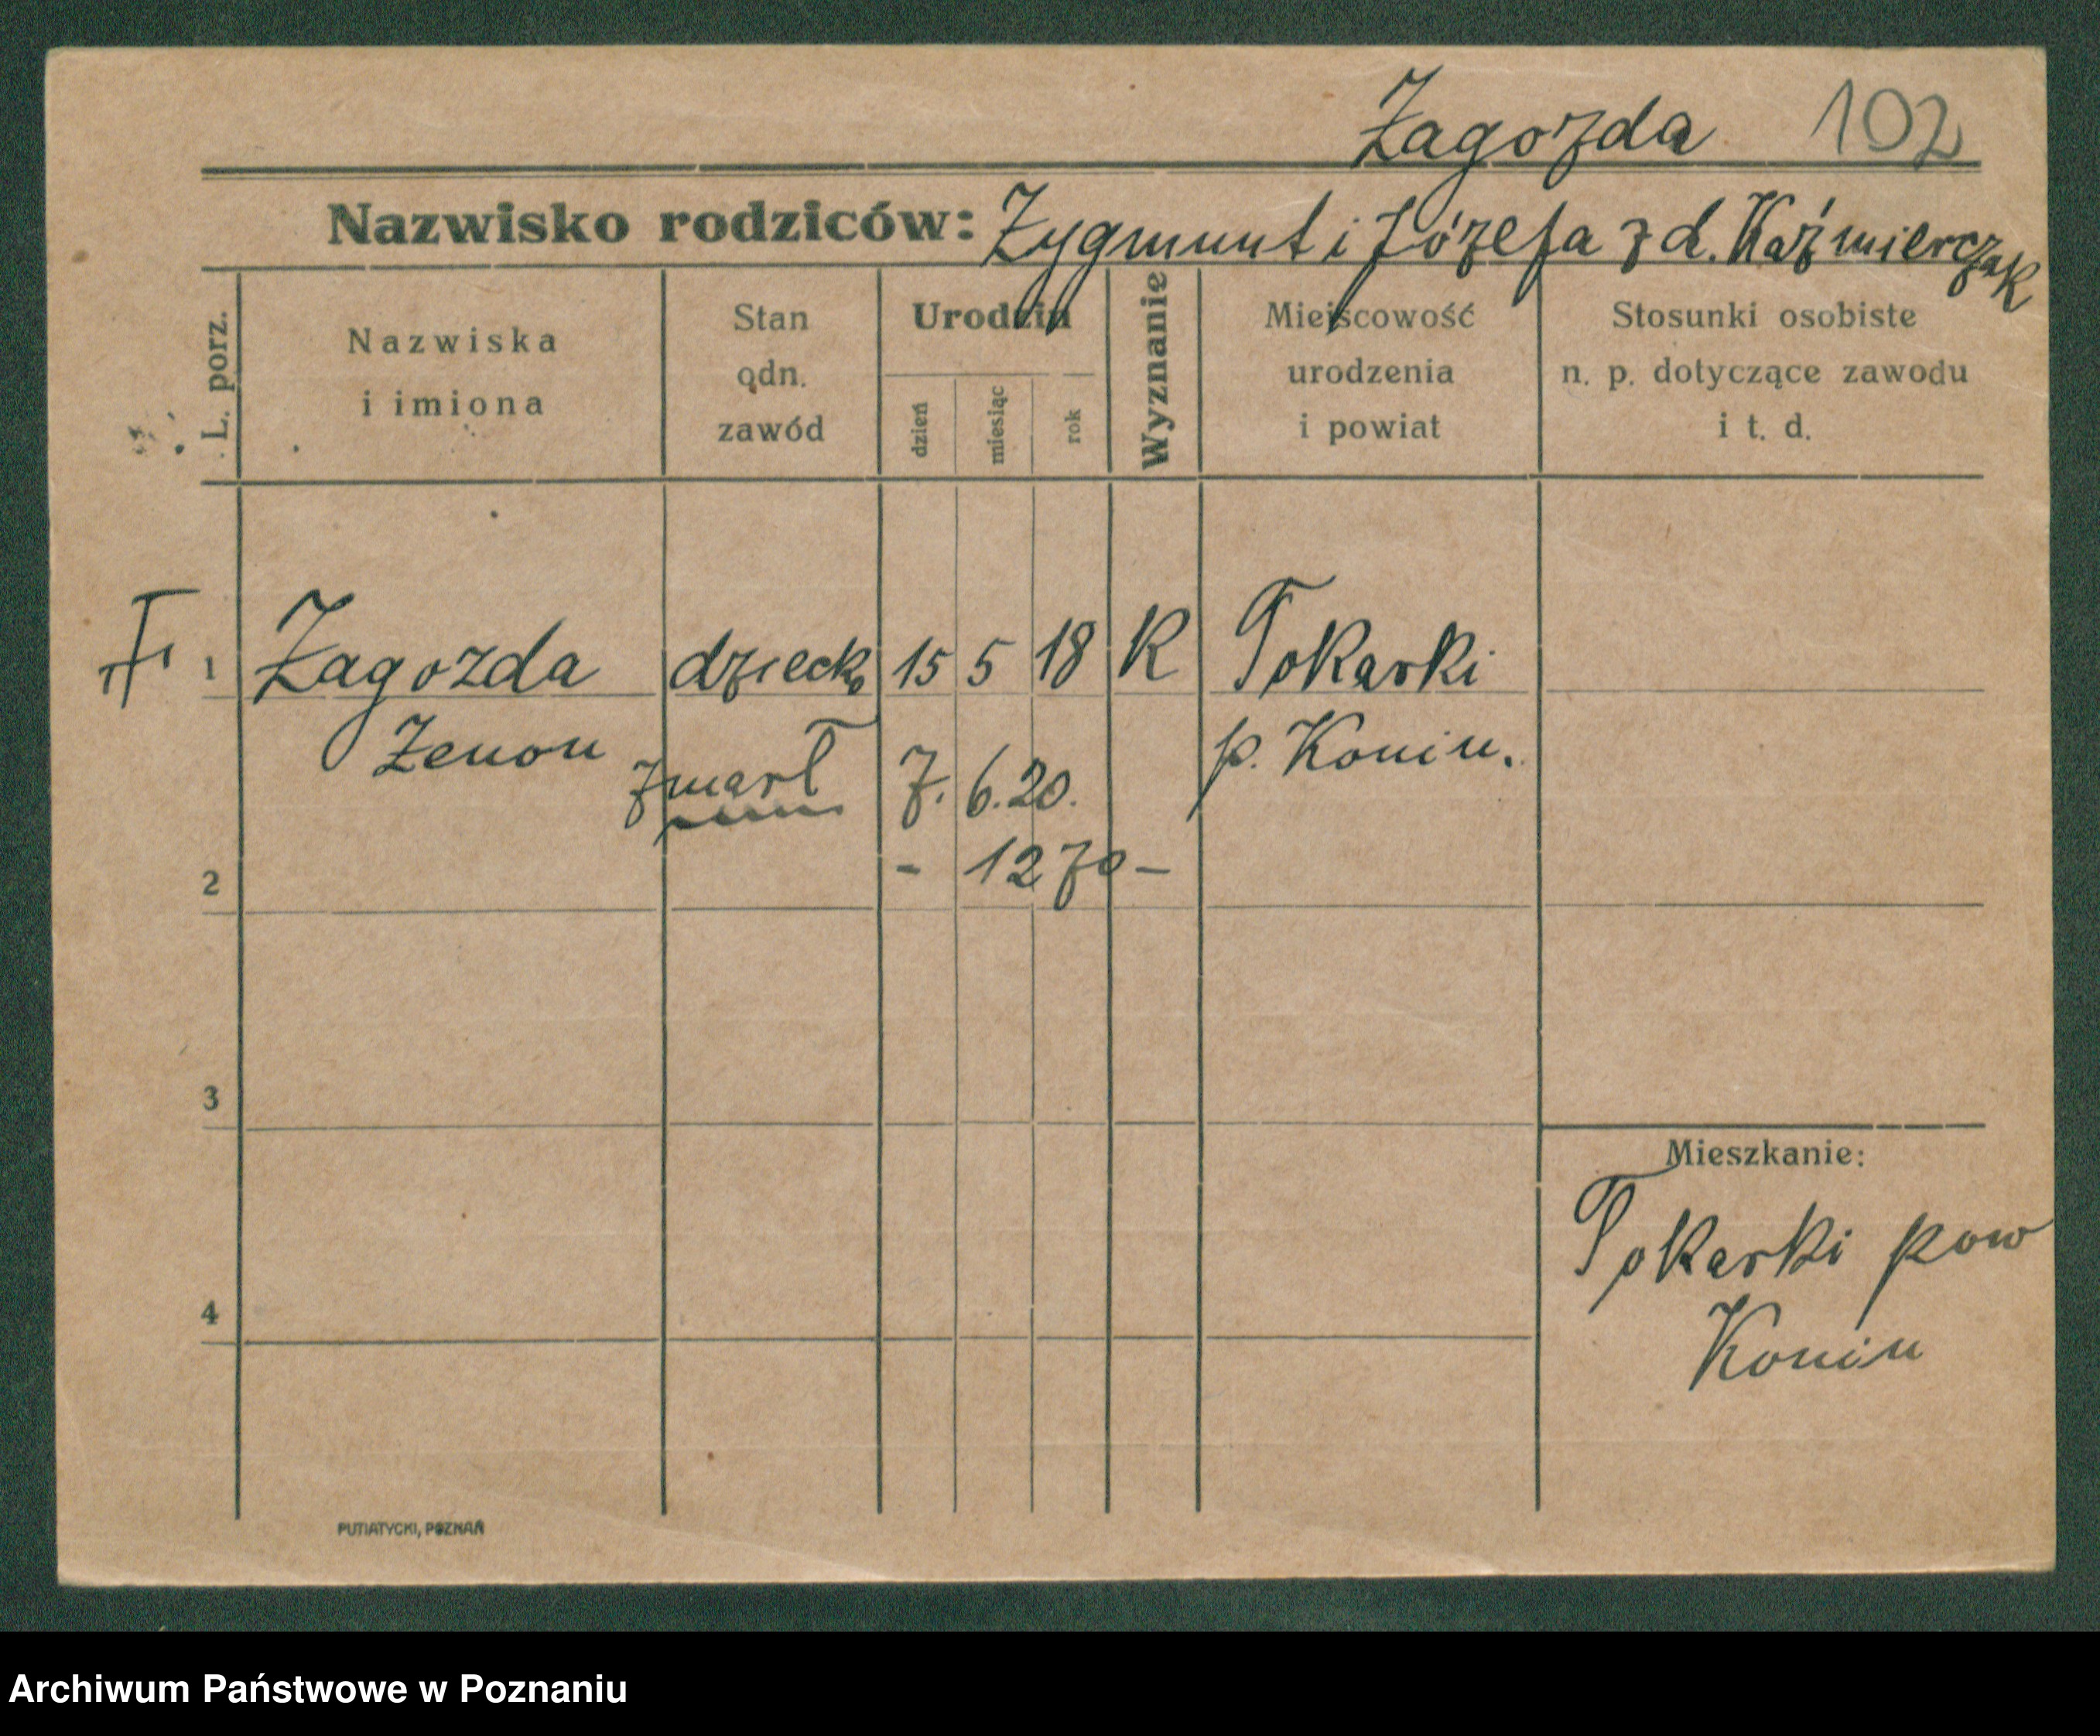 Zagozda 102
Nazwisko rodziców: Zygmunt i Józefa z d. Kaźmierczak
L. porz.
Nazwiska
i imiona
Stan
odn.
zawód
Urodzin
dzień
miesiąc
rok
Wyznanie
Miejscowość
urodzenia
i powiat
Stosunki osobiste
n. p. dotyczące zawodu
i t. d.
1 Zagozda dziecko 15 5 18 K Tokarki
Zenon p. Konin.
zmarł 7. 6. 20.
- 1270 -
2
3
Mieszkanie:
Tokarki pow
4
Konin
PUTIATYCKI, POZNAŃ
Archiwum Państwowe w Poznaniu